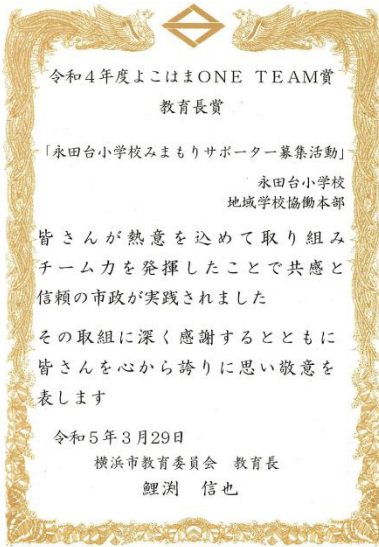 令和4年度よこはまONE TEAM賞
教育長賞
「永田台小学校みまもりサポーター募集活動」
永田台小学校
地域学校協働本部
皆さんが熱意を込めて取り組み
チーム力を発揮したことで共感と
信頼の市政が実践されました
その取組に深く感謝するとともに
皆さんを心から誇りに思い敬意を
表します
令和5年3月29日
横浜市教育委員会 教育長
鯉渕 信也